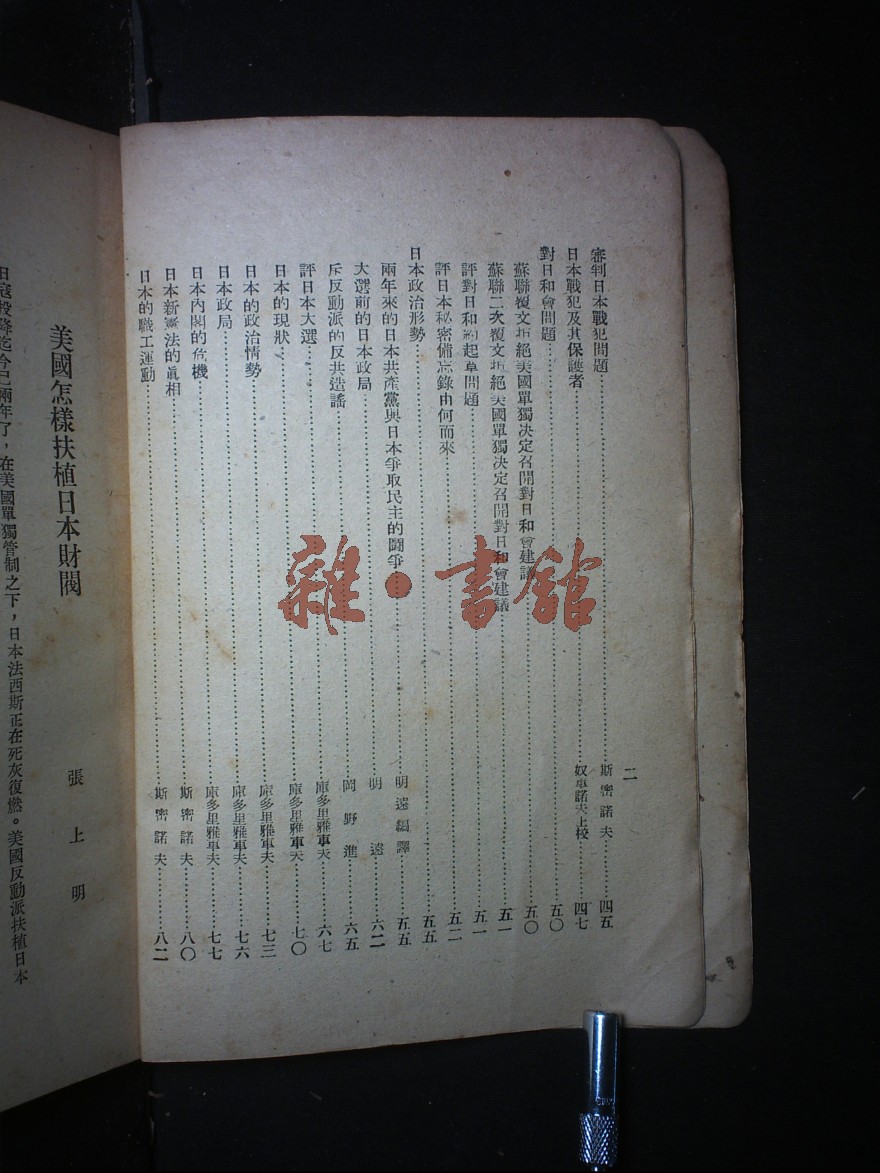 二
審判日本戰犯問題 斯密諾夫 四五
日本戰犯及其保護者 奴車諾夫上校 四七
對日和會問題 五〇
蘇聯覆文拒絕美國單獨決定召開對日和會建議 五〇
蘇聯二次覆文拒絕美國單獨決定召開對日和會建議 五一
評對日和約起草問題 五一
評日本秘密備忘錄由何而來 五二
日本政治形勢 五五
兩年來的日本共產黨與日本爭取民主的鬪爭 明遠編譯 五五
大選前的日本政局 明遠 六二
斥反動派的反共造謠 岡野進 六五
評日本大選 庫多里雅車夫 六七
日本的現狀 庫多里雅車夫 七〇
日本的政治情勢 庫多里雅車夫 七三
日本政局 庫多里雅車夫 七六
日本內閣的危機 庫多里雅車夫 七七
日本新憲法的眞相 斯密諾夫 八〇
日本的職工運動 斯密諾夫 八二
雜·書館
美國怎樣扶植日本財閥
張上明
日寇投降迄今已兩年了，在美國單獨管制之下，日本法西斯正在死灰復燃。美國反動派扶植日本